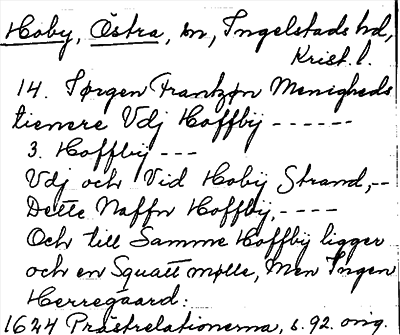 Hoby, Östra, sn, Ingelstads hd,
Krist. l.
14. Jørgen Frantzøn Menigheds
tienere Vdj Hoffbÿ ------
3. Hoffbÿ ---
Vdj och Vid Hobÿ Strand, --
Dette Naffn Hoffbÿ, ----
Och till Samme Hoffbÿ ligger
och en Squatt mølle, Men Ingen
Herregaard:
1624 Prästrelationerna, s. 92. orig.